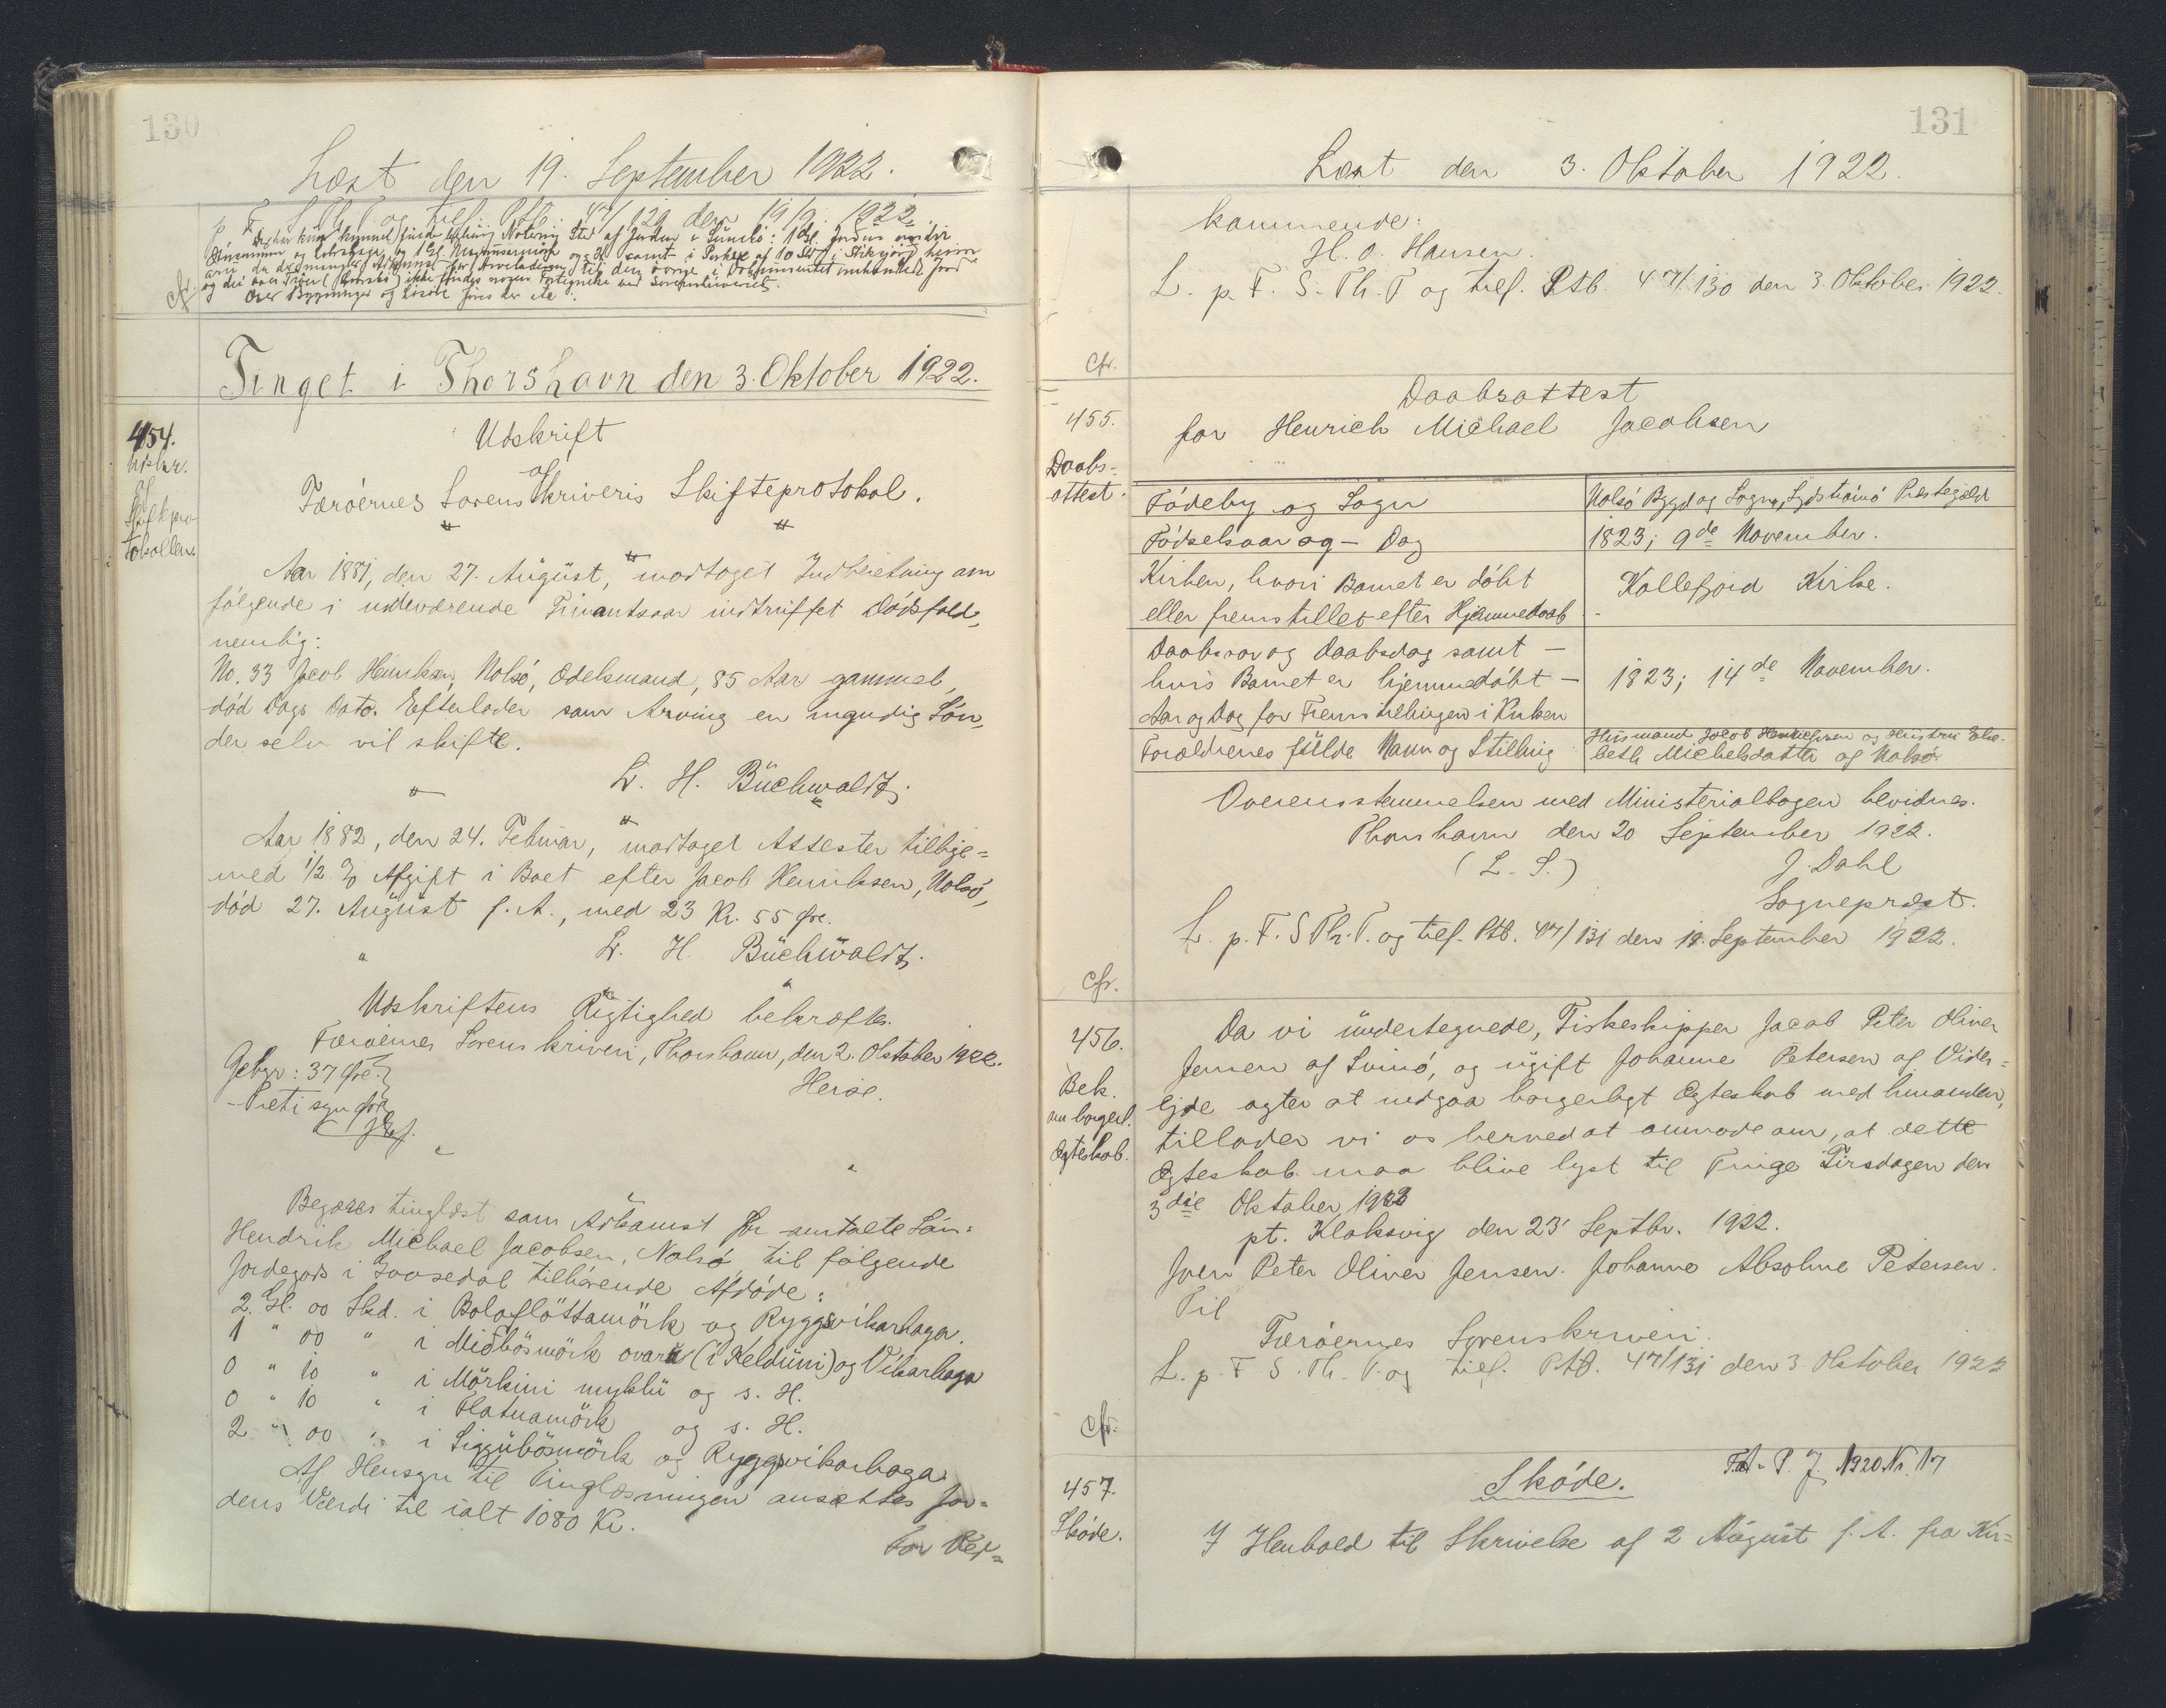 130
Læst den 19. September 1922.
p. F. S. Th. T. og tilf. Ptb. 47/129 den 19/9. 1922
Cfr.
Tinget i Thorshavn den 3. Oktober 1922.
454.
Udskr.
af
Skiftepro-
tokollen.
Udskrift
af
Færöernes Sorenskriveris Skifteprotokol.
Aar 1881, den 27. August, modtaget Indberetning om
følgende i nuværende Finantsaar indtruffet Dödsfald,
nemlig:
No. 33 Jacob Henriksen, Nolsö, Odelsmand, 85 Aar gammel,
död Dags Dato. Efterlader som Arving en myndig Sön,
der selv vil skifte.
L. H. Buchwaldt.
Aar 1882, den 24. Februar, modtaget Attester tillige-
med 1/2 % Afgift i Boet efter Jacob Henriksen, Nolsö,
död 27. August f. A., med 23 Kr. 55 Øre.
L. H. Buchwaldt.
Udskriftens Rigtighed bekræftes.
Færöernes Sorenskriveri, Thorshavn, den 2. Oktober 1922.
Gebyr: 37 Øre.
Herse.
- Treti syv Øre
Begæres tinglæst som Adkomst for omtalte Sön:
Hendrik Michael Jacobsen, Nolsö, til følgende
Jordegods i Goosedal tilhörende Afdöde:
2. Gl. 00 Skd. i Bolaflöttamörk og Ryggsvikarhaga.
1 " 00 " i Miðbösmörk ovara (i Kelduni) og Vikarhaga
0 " 10 " i Mörkini myklu og s. H.
0 " 10 " i Flatnamörk og s. H.
2 " 00 " i Siggubösmörk og Ryggsvikarhaga.
Af Hensyn til Tinglæsningen ansættes Jor-
dens Værdi til ialt 1080 Kr.
For Ved-
131
Læst den 3. Oktober 1922.
kommende:
H. O. Hansen.
L. p. F. S. Th. T og tilf. Ptb. 47/130 den 3. Oktober 1922.
Cfr.
455.
Daabs-
attest.
Daabsattest
for Henrich Michael Jacobsen
Födeby og Sogn
Nolsö Bygd og Sogn, Sydströmö Præstegjæld
Födselsaar og - Dag
1823; 9de November.
Kirken, hvori Barnet er döbt
eller fremstillet efter Hjemmedaab
Kollefjord Kirke.
Daabsaar og Daabsdag samt -
hvis Barnet er hjemmedöbt -
Aar og Dag for Fremstillingen i Kirken
1823; 14de November.
Forældrenes fulde Navn og Stilling
Husmand Jacob Henrichsen og Hustru Else-
beth Michelsdatter af Nolsö.
Overensstemmelsen med Ministerialbogen bevidnes.
Thorshavn den 20 September 1922.
(L. S.)
J. Dahl
Sognepræst.
L. p. F. S Th. T. og tilf. Ptb. 47/131 den 19. September 1922.
Cfr.
456.
Bek.
om borgerl.
Ægteskab.
Da vi undertegnede, Fiskeskipper Jacob Peter Oliver
Jensen af Svinö, og ugift Johanne Petersen af Vider-
ejde agter at indgaa borgerligt Ægteskab med hinanden,
tillader vi os herved at anmode om, at dette
Ægteskab maa blive lyst til Tinge Tirsdagen den
3die Oktober 1922
pt. Klaksvig den 23' Septbr. 1922.
Joen Peter Oliver Jensen. Johanne Absoline Petersen.
Til
Færöernes Sorenskriveri.
L. p. F. S. Th. T. og tilf. Ptb. 47/131 den 3. Oktober 1922
Cfr.
457.
Sköde.
Sköde.
F. A. P. J. 1920 Nr. 17
I Henhold til Skrivelse af 2 August f. A. fra Kir-